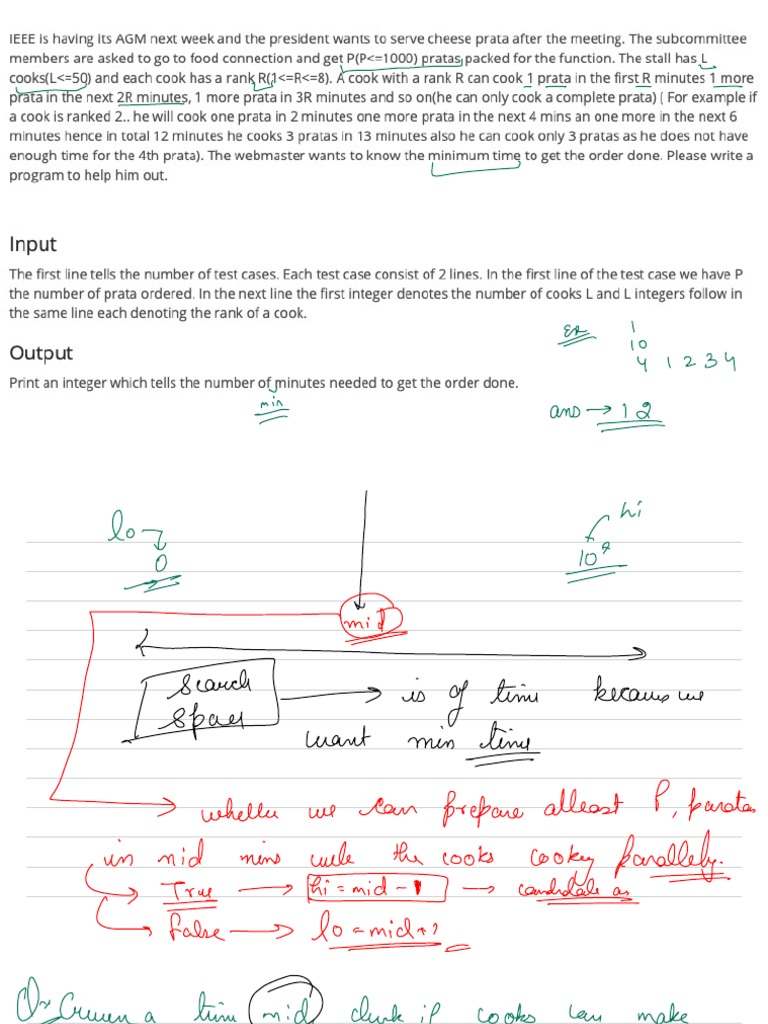 IEEE is having its AGM next week and the president wants to serve cheese prata after the meeting. The subcommittee
members are asked to go to food connection and get P(P<=1000) pratas packed for the function. The stall has L
cooks(L<=50) and each cook has a rank R(1<=R<=8). A cook with a rank R can cook 1 prata in the first R minutes 1 more
prata in the next 2R minutes, 1 more prata in 3R minutes and so on(he can only cook a complete prata) ( For example if
a cook is ranked 2.. he will cook one prata in 2 minutes one more prata in the next 4 mins an one more in the next 6
minutes hence in total 12 minutes he cooks 3 pratas in 13 minutes also he can cook only 3 pratas as he does not have
enough time for the 4th prata). The webmaster wants to know the minimum time to get the order done. Please write a
program to help him out.
Input
The first line tells the number of test cases. Each test case consist of 2 lines. In the first line of the test case we have P
the number of prata ordered. In the next line the first integer denotes the number of cooks L and L integers follow in
the same line each denoting the rank of a cook.
Ex 1
10
4 1 2 3 4
Output
Print an integer which tells the number of minutes needed to get the order done.
min
ans → 12
lo
0
hi
mid
search
space
→ is of time because we
want min time
→ whether we can prepare atleast P, paratas
in mid mins while the cooks cookey parallely.
True → hi = mid - 1 → candidate as
false → lo = mid+1
Given a time mid check if cooks can make